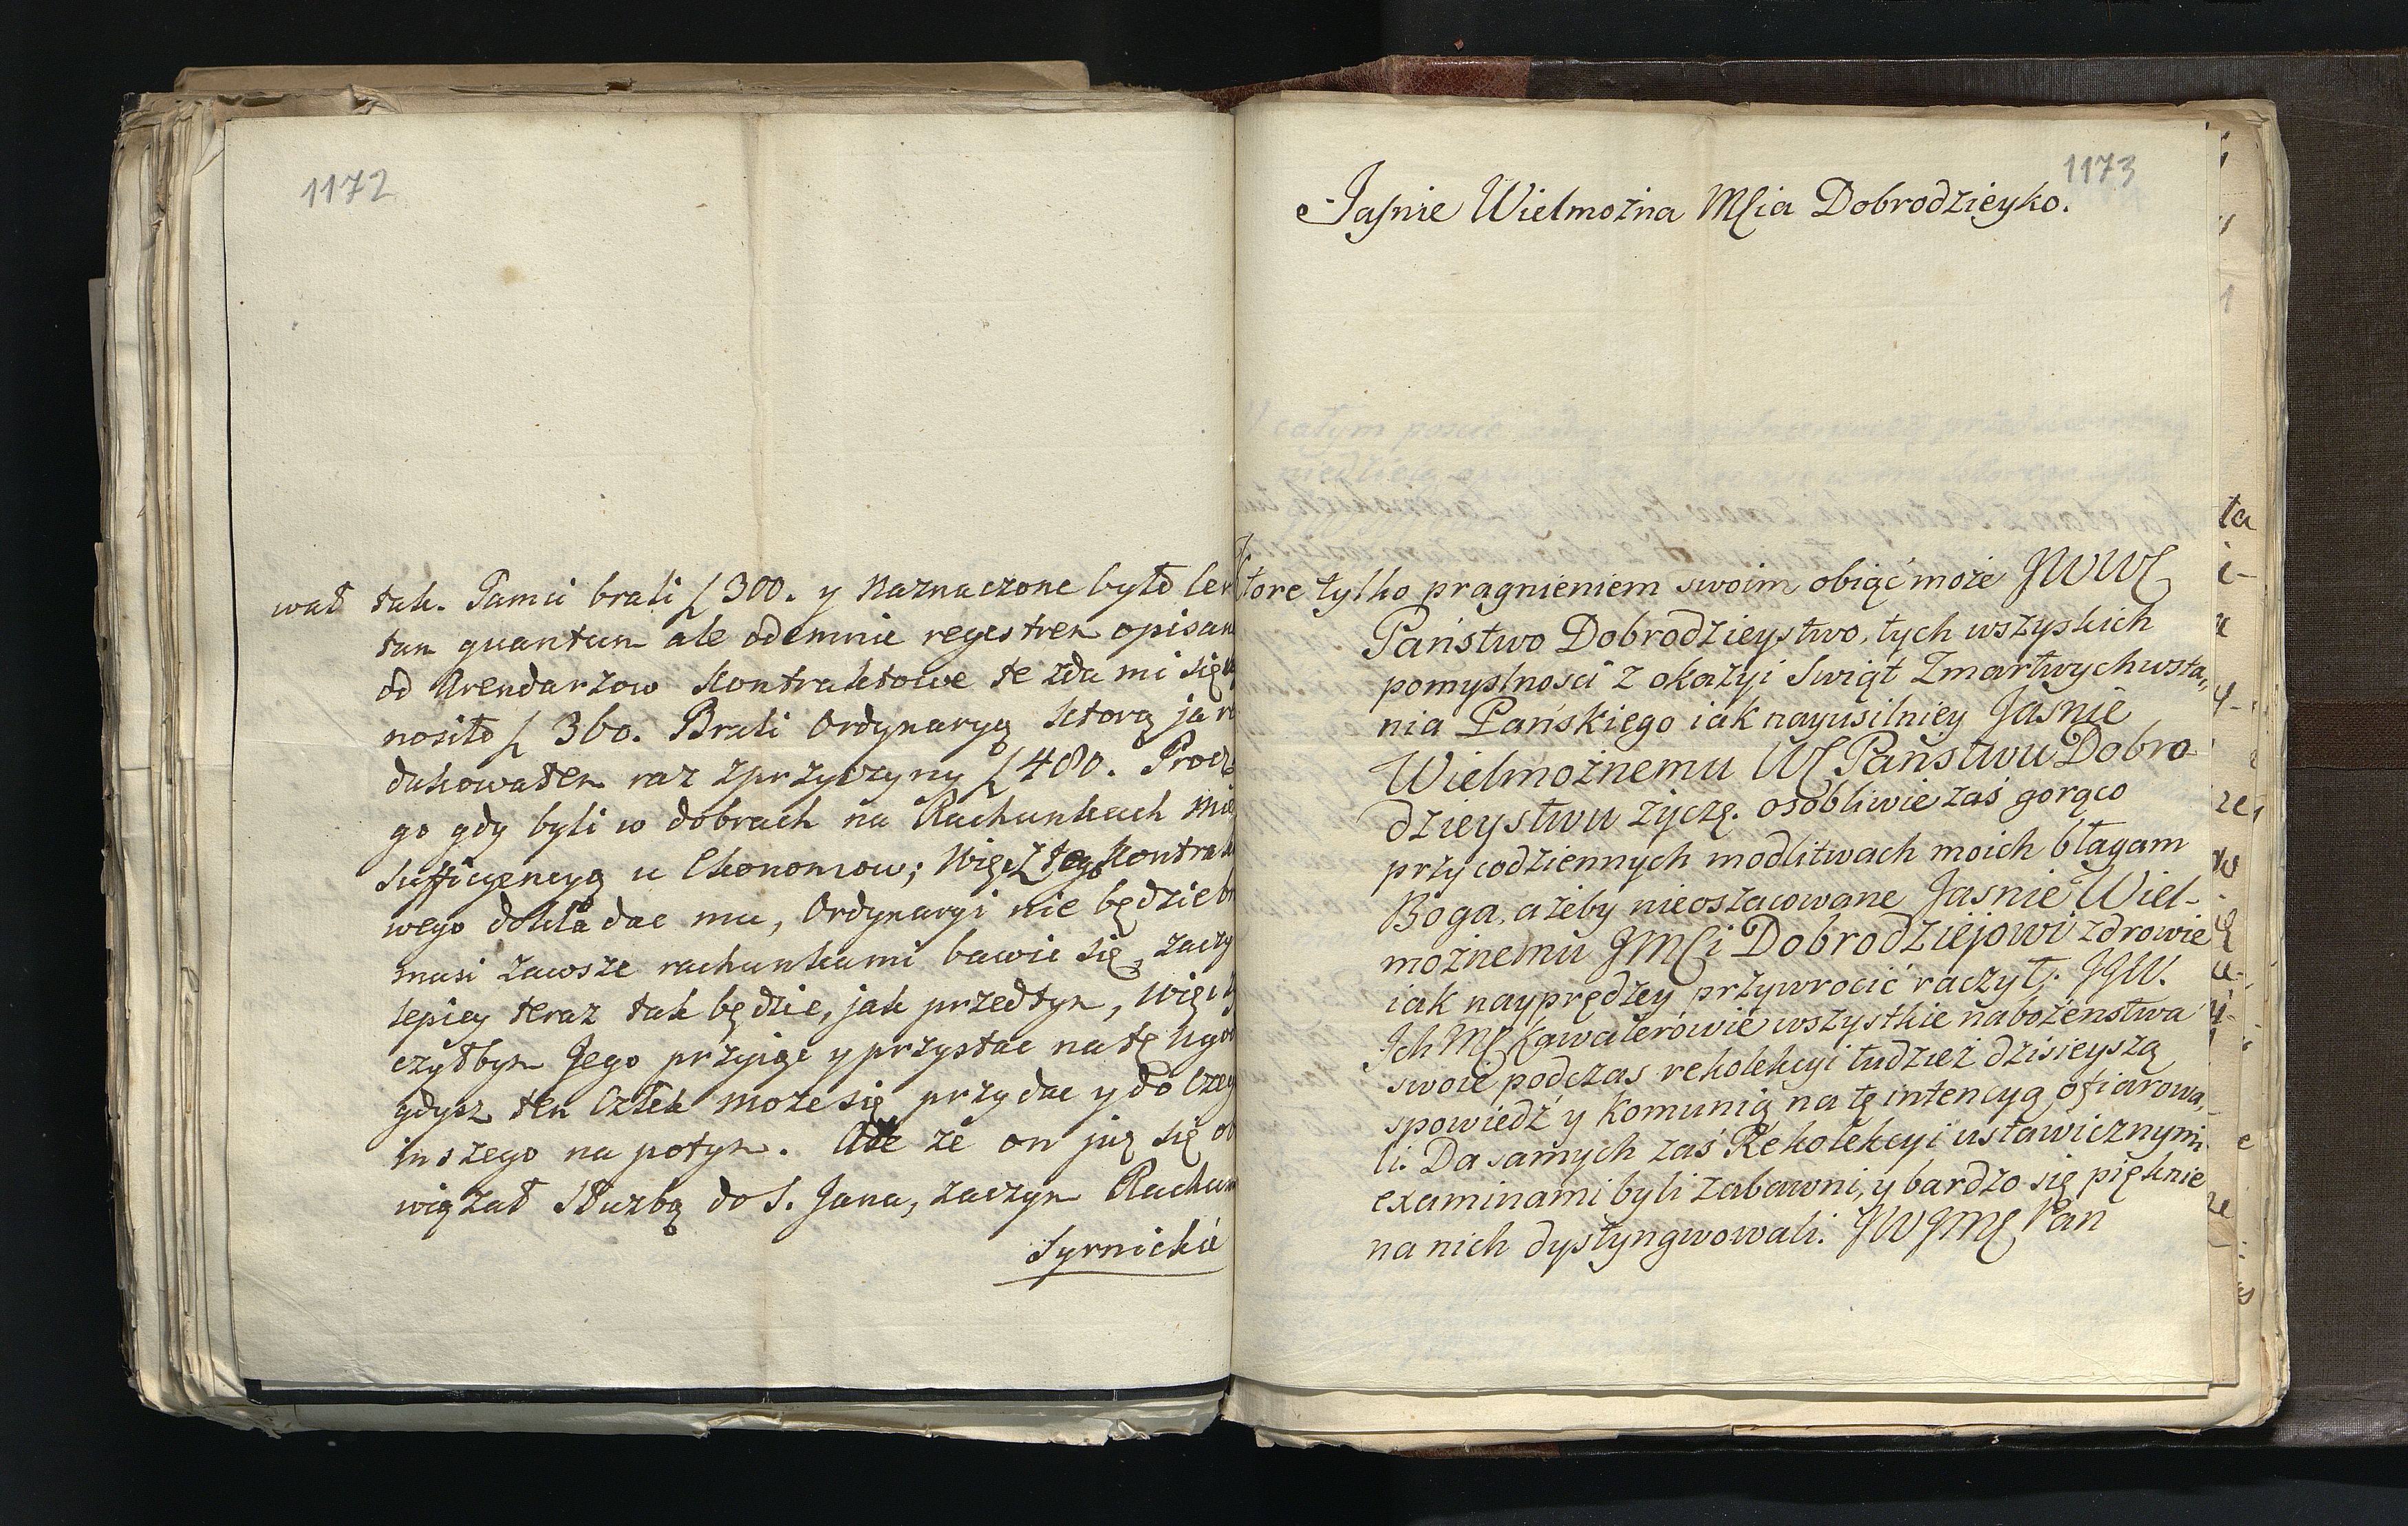 1172
wał tak. Tamci brali f 300. y naznaczone było
tam quantum ale odemnie regestrem opisan
od Arendarzow Kontraktowe te zda mi się
nosiło f 360. Brali Ordynaryą ktorą ja
dukowałem raz zprzyczyny f 480. Procz
go gdy byli w dobrach na Rachunkach
sufficyencyą u Ekonomow; Więc z tego Kontrak
wego dokładac mu, Ordynaryi nie będzie
musi zawsze rachunkami bawic się, zaczy
lepiey teraz tak będzie, jak przedtym, Więc
czyłbym Jego przyiąc y przystac na tę Ugo
gdysz ten Człek może się przydac y do Czego
inszego na potym. Ale że on już się
wiązał Służbą do S. Jana, zaczym Rachun
Syrnicki
1173
Jaśnie Wielmożna Mcia Dobrodzieyko.
Ktore tylko pragnieniem swoim obiąć może JWW
Państwo Dobrodzieystwo, tych wszyskich
pomyslności z okazyi Swiąt Zmartwychwsta„
nia Pańskiego iak nayusilniey Jaśnie
Wielmożnemu W Państwu Dobro
dzieystwu życzę. osobliwie zaś gorąco
przy codziennych modlitwach moich błagam
Boga, ażeby nieoszacowane Jaśnie Wiel-
możnemu JMci Dobrodziejowi zdrowie
iak nayprędzey przywrocić raczył. JJW.
Ich MC Kawalerówie wszystkie nabożenstwa
swoie podczas rekolekcyi tudzież dzisieyszą
spowiedź y Komunią na tę intencyą ofiarowa,
li. Da samych zaś Rekolekcyi ustawicznymi
examinami byli zabawni, y bardzo się pięknie
na nich dystyngwowali. JW JMC Pan